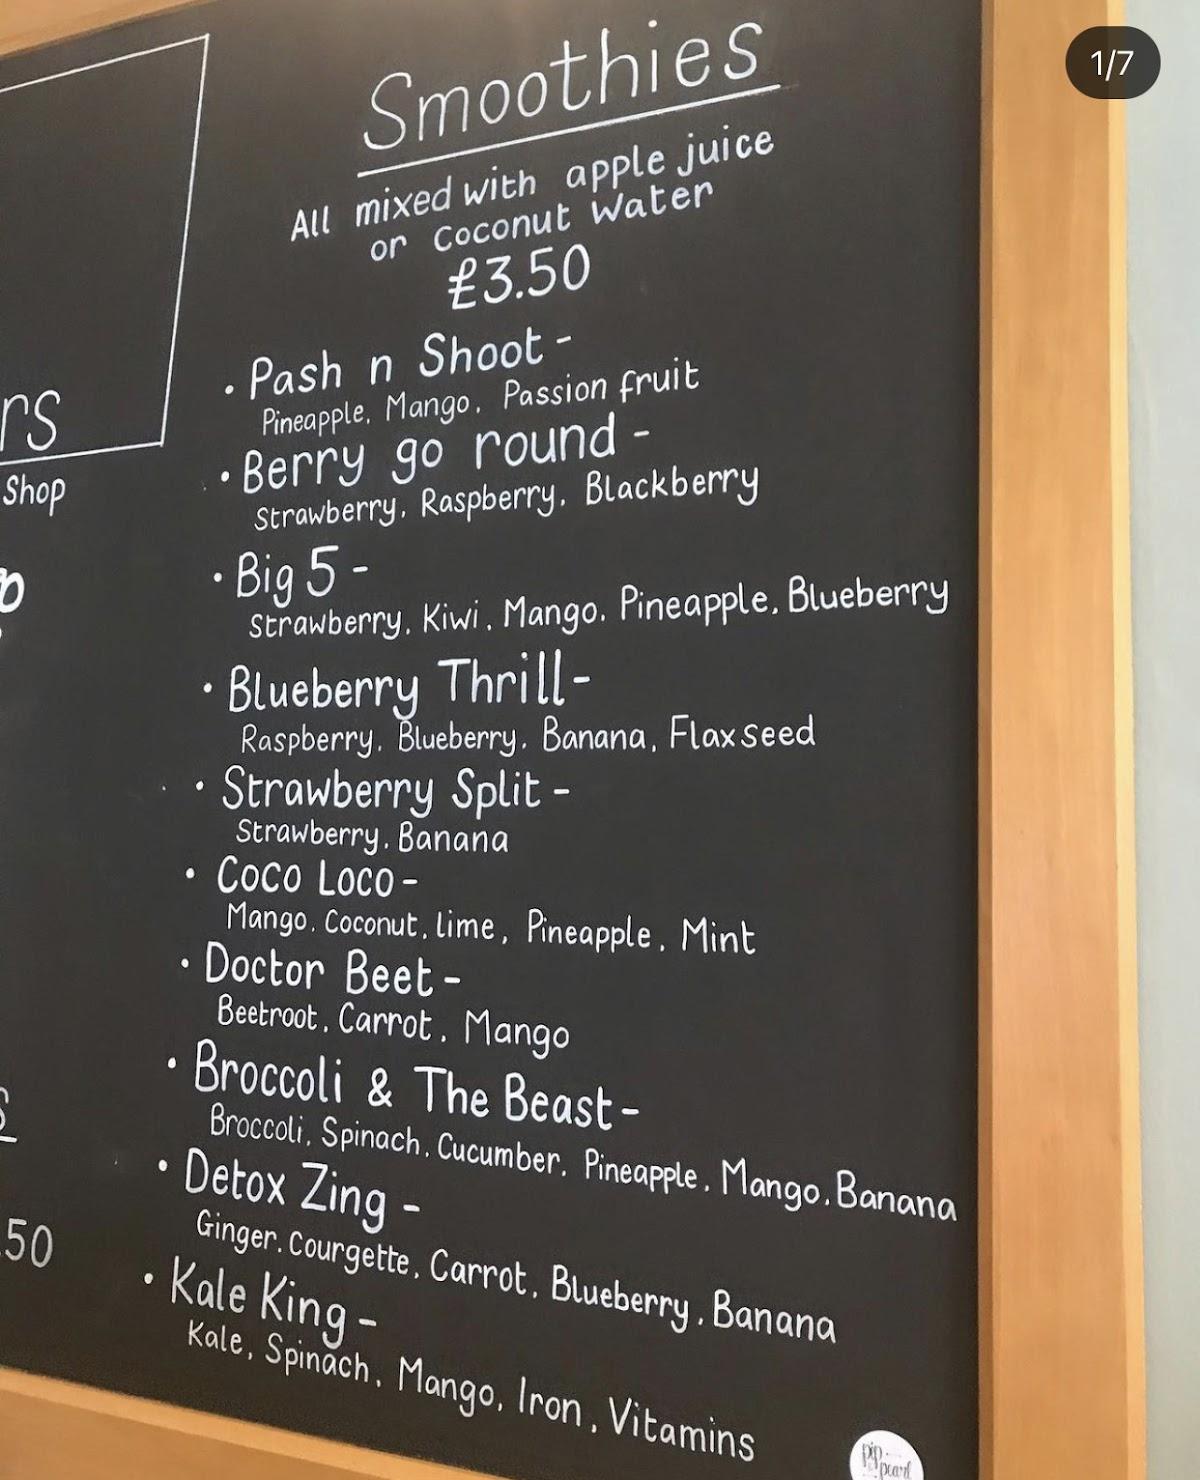 1/7
Smoothies
All mixed with apple juice
or coconut water
£3.50
rs
Shop
• Pash n Shoot -
Pineapple, Mango, Passion fruit
• Berry go round -
Strawberry, Raspberry, Blackberry
• Big 5 -
Strawberry, Kiwi, Mango, Pineapple, Blueberry
• Blueberry Thrill -
Raspberry, Blueberry, Banana, Flaxseed
• Strawberry Split -
Strawberry, Banana
• Coco Loco -
Mango, Coconut, lime, Pineapple, Mint
• Doctor Beet -
Beetroot, Carrot, Mango
• Broccoli & The Beast -
Broccoli, Spinach, Cucumber, Pineapple, Mango, Banana
• Detox Zing -
Ginger, Courgette, Carrot, Blueberry, Banana
.50
• Kale King -
Kale, Spinach, Mango, Iron, Vitamins
pip
pearl